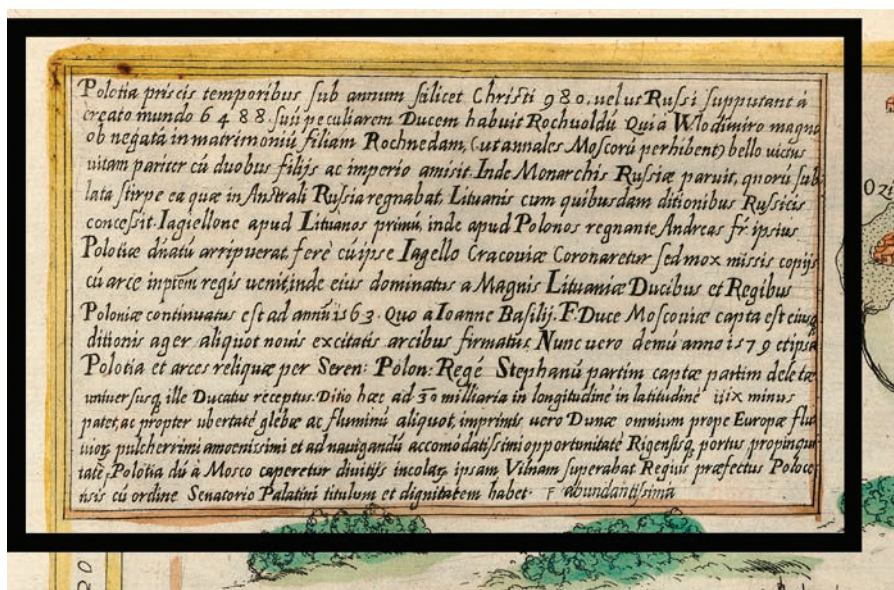 Polotia priscis temporibus sub annum scilicet Christi 980. uel ut Russi supputant à
creato mundo 6488. suū peculiarem Ducem habuit Rochuoldū Qui à Wlodimiro magno
ob negatā in matrimoniū filiam Rochnedam, (ut annales Moscorū perhibent) bello uictus
uitam pariter cū duobus filijs ac imperio amisit. Inde Monarchis Russiæ paruit, quorū sub
lata stirpe ea quæ in Australi Russia regnabat, Lituanis cum quibusdam ditionibus Russicis
concessit. Iagiellone apud Lituanos primū, inde apud Polonos regnante Andreas fr̄ ipsius
Polotiæ dn̄atū arripuerat, ferè cū ipse Iagello Cracouiæ Coronaretur sed mox missis copijs
cū arce in ptēm regis uenit, inde eius dominatus a Magnis Lituaniæ Ducibus et Regibus
Poloniæ continuatus est ad annū 1563. Quo a Ioanne Basilij. F. Duce Moscouiæ capta est eiusq̨
ditionis ager aliquot nouis excitatis arcibus firmatus. Nunc uero demū anno 1579 et ipsa
Polotia et arces reliquæ per Seren: Polon: Regē Stephanū partim captæ partim deletæ
uniuersusq̨ ille Ducatus receptus. Ditio hæc ad 30 milliaria in longitudinē in latitudinē iiix minus
patet, ac propter ubertatē glebæ ac fluminū aliquot, imprimis uero Dunæ omnium prope Europæ flu
uiorꝝ pulcherrimi amoenissimi et ad nauigandū accomodatissimi opportunitatē Rigensisq̨ portus propinqui
tatē F Polotia dū à Mosco caperetur diuitijs incolarꝝ ipsam Vilnam superabat Regius præfectus Poloce
nsis cū ordine Senatorio Palatini titulum et dignitatem habet. F abundantissima
20